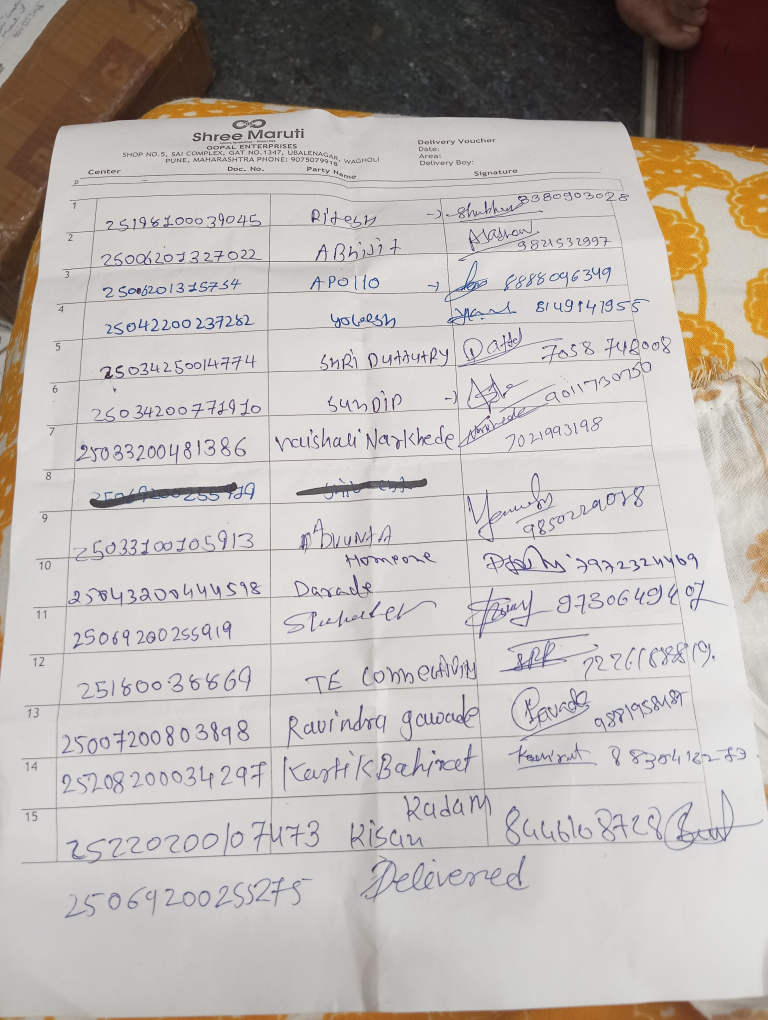 Shree Maruti
GOPAL ENTERPRISES
SHOP NO.5, SAI COMPLEX, GAT NO.1347, UBALENAGAR, WAGHOLI
PUNE, MAHARASHTRA PHONE: 9075079918
Delivery Voucher
Date:
Area:
Delivery Boy:
Center Doc. No. Party Name Signature
1 25198100039045 Ritesh 8380903028
2 25006201327022 ABHIJIT 9821532997
3 25006201315754 APOllO 8888096349
4 25042200237282 yogesh 8149141955
5 25034250014774 SHRI DUTTATRY Datta 7058748008
6 25034200771910 SUNDIP 9011730750
7 25033200481386 Vaishali Narkhede Narkhede 7021993198
8
9 25033100105913 9850229078
10 25043200444598 Homeone Darade 7972324469
11 25069200255919 9730649407
12 25180038869 TE Connectivity
13 25007200803898 Ravindra gawade Gavade
14 25208200034297 Kartik Bahirat
15 25220200107473 Kadam Kisan 8446108728
25069200255275 Delivered